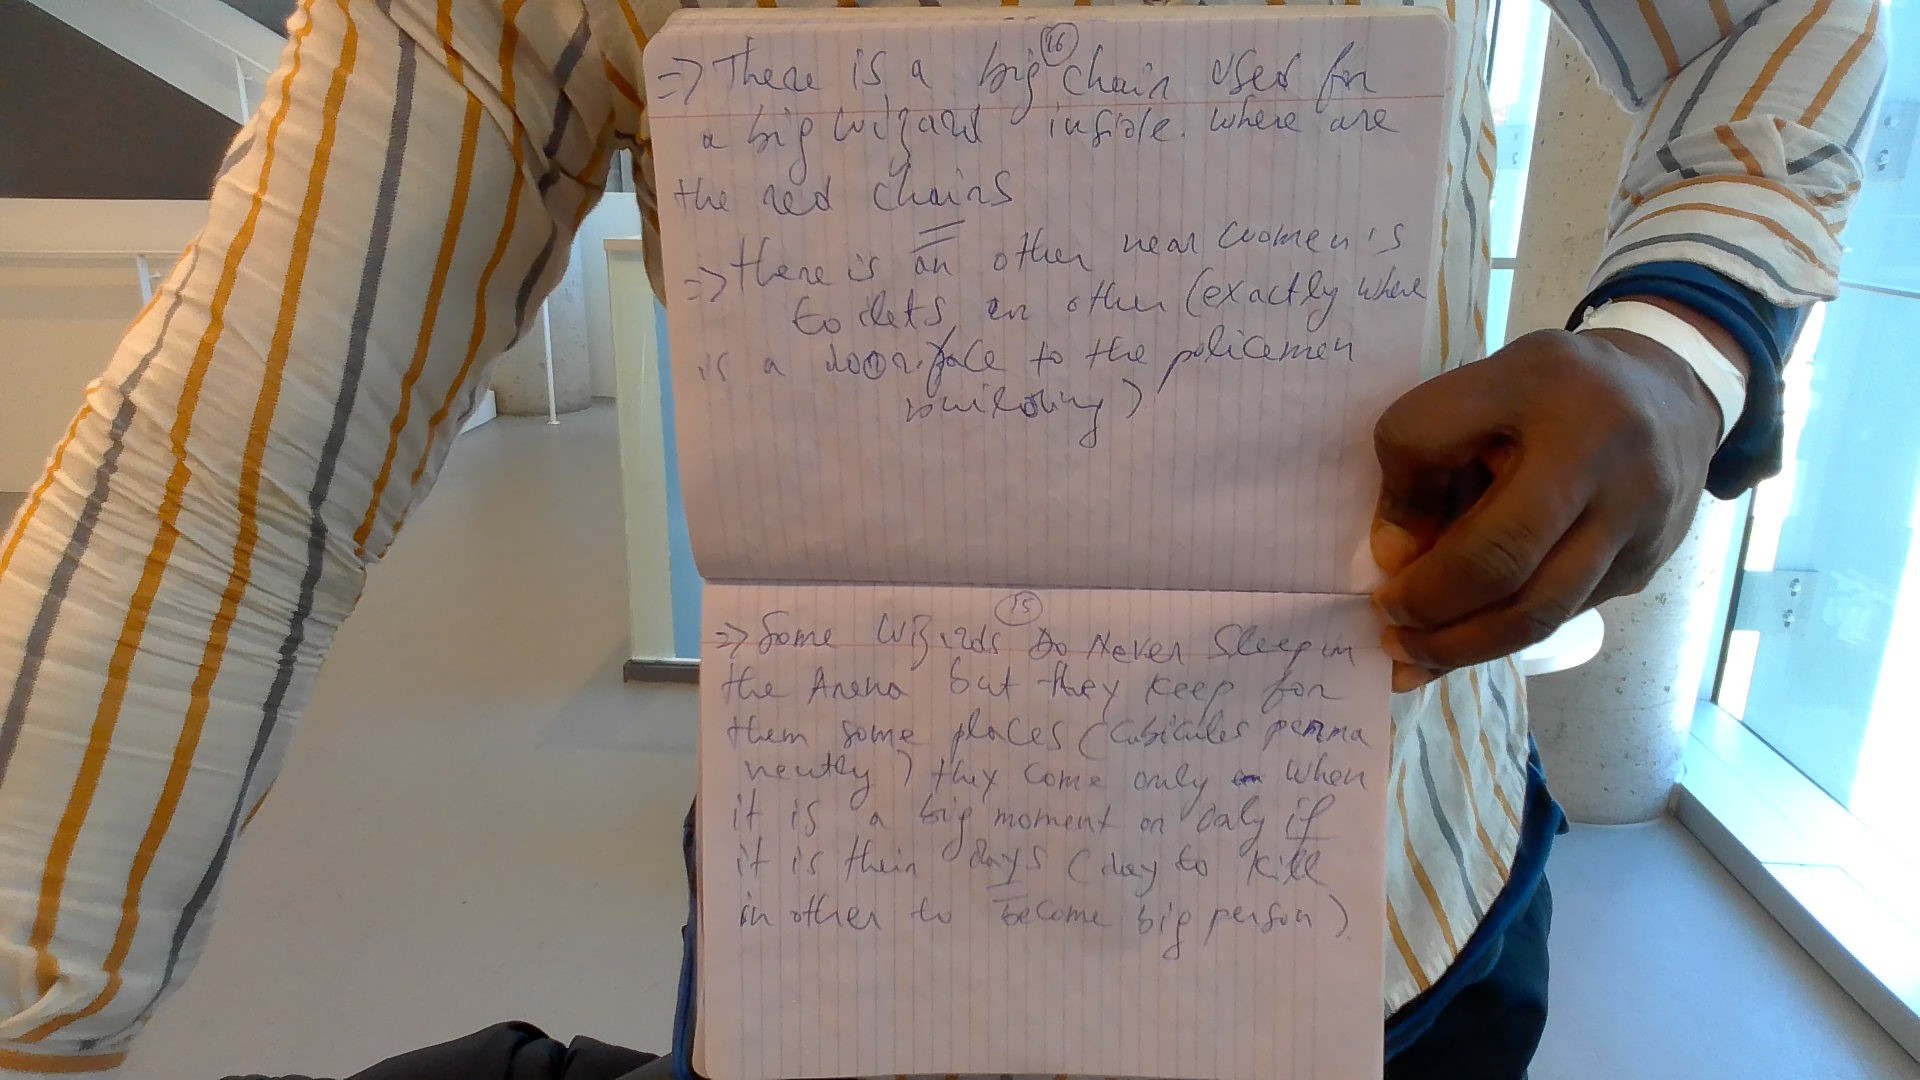 16
=> There is a big chain used for
a big wizard inside. where are
the red chairs
=> there is an other near women is
toilets an other (exactly where
is a door face to the policemen
15
=> Some wizards Do Never Sleep in
the Arena but they keep for
them some places (cubicules perma
nently) they come only when
it is a big moment or only if
it is their days (day to kill
in other to become big person)